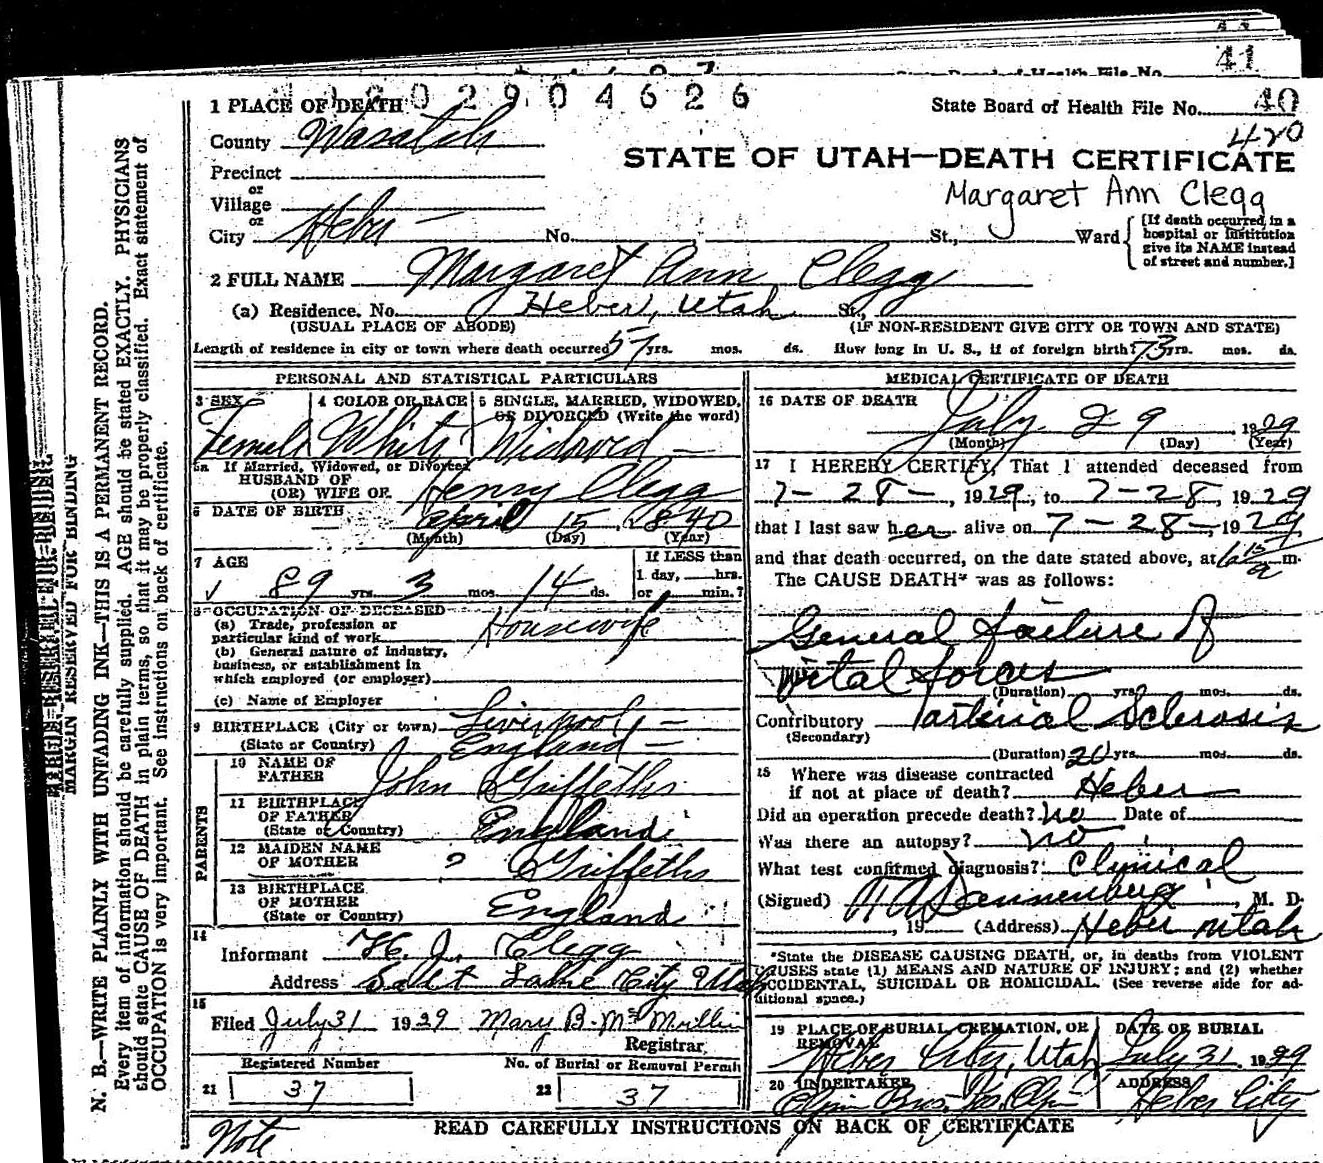 41
State Board of Health File No. 40
2904626
420
1 PLACE OF DEATH
County Wasatch
STATE OF UTAH—DEATH CERTIFICATE
Precinct
or
Village
Margaret Ann Clegg
or
City Heber No. St., Ward
[If death occurred in a
hospital or institution
give its NAME instead
of street and number.]
2 FULL NAME Margaret Ann Clegg
(a) Residence. No. Heber, Utah St.,
(USUAL PLACE OF ABODE) (IF NON-RESIDENT GIVE CITY OR TOWN AND STATE)
Length of residence in city or town where death occurred 57 yrs. mos. ds. How long in U. S., if of foreign birth? 73 yrs. mos. ds.
PERSONAL AND STATISTICAL PARTICULARS
3 SEX Female
4 COLOR OR RACE White
5 SINGLE, MARRIED, WIDOWED,
OR DIVORCED (Write the word)
Widowed
5a If Married, Widowed, or Divorced
HUSBAND OF
(OR) WIFE OF Henry Clegg
6 DATE OF BIRTH April 15, 1840
(Month) (Day) (Year)
7 AGE
89 yrs. 3 mos. 14 ds.
If LESS than
1 day, hrs.
or min.?
8 OCCUPATION OF DECEASED
(a) Trade, profession or
particular kind of work Housewife
(b) General nature of industry,
business, or establishment in
which employed (or employer)
(c) Name of Employer
9 BIRTHPLACE (City or town) Liverpool
(State or Country) England
PARENTS
10 NAME OF
FATHER John Griffeths
11 BIRTHPLACE
OF FATHER
(State or Country) England
12 MAIDEN NAME
OF MOTHER ? Griffeths
13 BIRTHPLACE
OF MOTHER
(State or Country) England
14
Informant H. J. Clegg
Address Salt Lake City Utah
15
Filed July 31 1929 Mary B. McMullin
Registrar
Registered Number
21 37
No. of Burial or Removal Permit
22 37
MEDICAL CERTIFICATE OF DEATH
16 DATE OF DEATH
July 29 1929
(Month) (Day) (Year)
17 I HEREBY CERTIFY, That I attended deceased from
7-28-, 1929, to 7-28, 1929
that I last saw her alive on 7-28-, 1929,
and that death occurred, on the date stated above, at m.
The CAUSE DEATH* was as follows:
General failure of
vital forces
(Duration) yrs. mos. ds.
Contributory arterial Sclerosis
(Secondary)
(Duration) 20 yrs. mos. ds.
Where was disease contracted
if not at place of death? Heber
Did an operation precede death? no Date of
Was there an autopsy? no
What test confirmed diagnosis? Clynical
(Signed) Dannenberg, M. D.
, 19 (Address) Heber Utah
*State the DISEASE CAUSING DEATH, or, in deaths from VIOLENT
CAUSES state (1) MEANS AND NATURE OF INJURY; and (2) whether
ACCIDENTAL, SUICIDAL OR HOMICIDAL. (See reverse side for ad-
ditional space.)
19 PLACE OF BURIAL, CREMATION, OR
REMOVAL
Heber City, Utah
DATE OF BURIAL
July 31 1929
20 UNDERTAKER
ADDRESS
Heber City
READ CAREFULLY INSTRUCTIONS ON BACK OF CERTIFICATE
Note
MARGIN RESERVED FOR BINDING
N. B.—WRITE PLAINLY WITH UNFADING INK—THIS IS A PERMANENT RECORD.
Every item of information should be carefully supplied. AGE should be stated EXACTLY. PHYSICIANS
should state CAUSE OF DEATH in plain terms, so that it may be properly classified. Exact statement of
OCCUPATION is very important. See instructions on back of certificate.